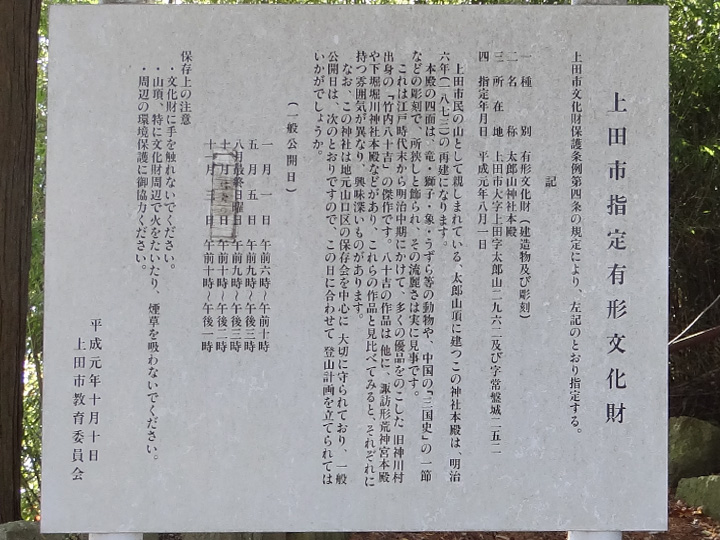 上田市指定有形文化財
上田市文化財保護条例第四条の規定により、左記のとおり指定する。
記
一 種別 有形文化財(建造物及び彫刻)
二 名称 太郎山神社本殿
三 所在地 上田市大字上田字太郎山二九六二及び字常盤城二五二一
四 指定年月日 平成元年八月一日
上田市民の山として親しまれている、太郎山頂に建つこの神社本殿は、明治
六年(一八七三)の再建になります。
本殿の四面は、竜・獅子・象・うずら等の動物や、中国の「三国史」の一節
などの彫刻で、所狭しと飾られ、その流麗さは実に見事です。
これは江戸時代末から明治中期にかけて、多くの優品をのこした 旧神川村
出身の「竹内八十吉」の傑作です。八十吉の作品は 他に、諏訪形荒神宮本殿
や下堀堀川神社本殿などがあり、これらの作品と見比べてみると、それぞれに
持つ雰囲気が異なり、興味深いものがあります。
なお、この神社は地元山口区の保存会を中心に 大切に守られており、一般
公開日は、次のとおりですので、この日に合わせて 登山計画を立てられては
いかがでしょうか。
(一般公開日)
一月一日 午前六時〜午前十時
五月五日 午前九時〜午後三時
八月最終日曜日 午前九時〜午後三時
午前十時〜午後二時
十一月三日 午前十時〜午後一時
保存上の注意
・文化財に手を触れないでください。
・山頂、特に文化財周辺で火をたいたり、煙草を吸わないでください。
・周辺の環境保護に御協力ください。
平成元年十月十日
上田市教育委員会